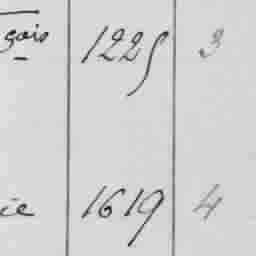 çais 1225 3
ie 1619 4